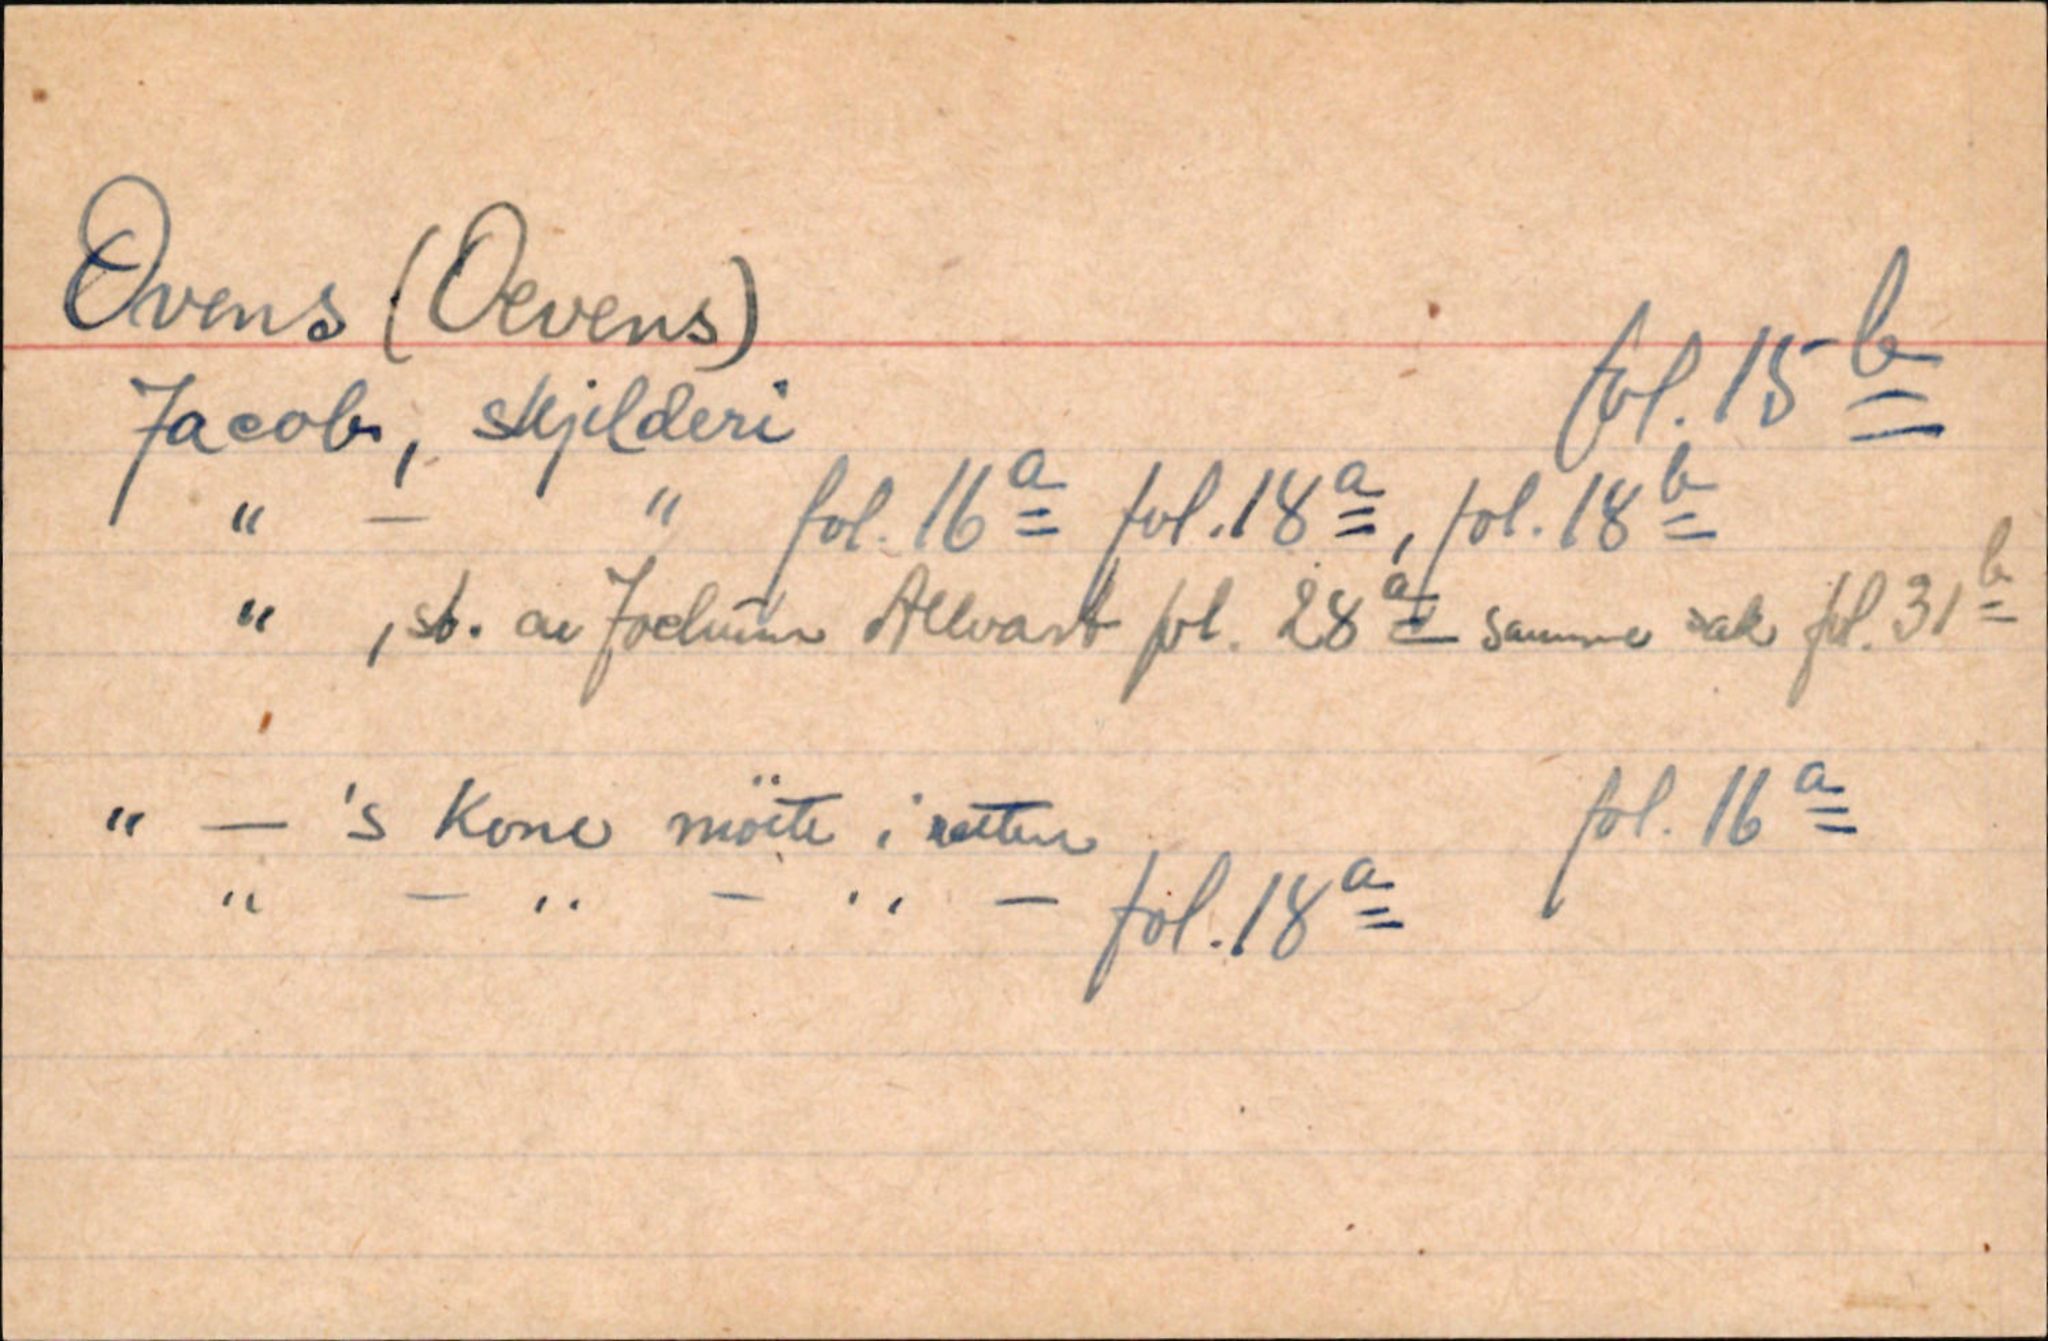 Ovens (Oevens)
Jacob, skjilderi fol. 15 b
" — " fol. 16 a fol. 18 a, fol. 18 b
" , st. av Jochum Allvart fol. 28 a samme sak fol. 31 b
" — 's Kone möte i retten fol. 16 a
" — " — " — fol. 18 a